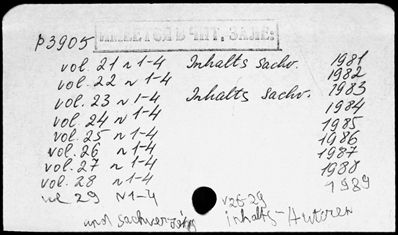 P3905 ИМЕЕТСЯ В ЧИТ. ЗАЛЕ:
vol. 21 N 1-4 Inhalts Sachv. 1981
vol. 22 N 1-4 1982
vol. 23 N 1-4 Inhalts Sachv. 1983
vol. 24 N 1-4 1984
vol. 25 N 1-4 1985
vol. 26 N 1-4 1986
vol. 27 N 1-4 1987
vol. 28 N 1-4 1988
vol 29 N 1-4 1989
v26-29
und Sachver- inhalts-Autoren